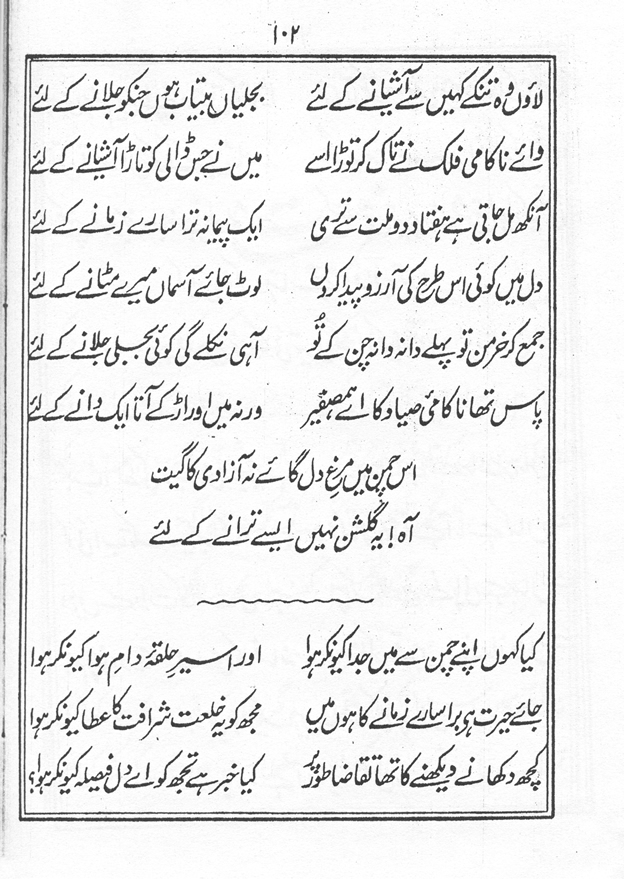 ۱۰۲
لاؤں وہ تنکے کہیں سے آشیانے کے لئے بجلیاں بیتاب ہوں جنکو جلانے کے لئے
وائے ناکامی فلک نے تاک کر توڑا اسے میں نے جس ڈالی کو تاڑا آشیانے کے لئے
آنکھ مل جاتی ہے ہفتاد دو ملت سے تری ایک پیمانہ ترا سارے زمانے کے لئے
دل میں کوئی اس طرح کی آرزو پیدا کروں لوٹ جائے آسماں میرے مٹانے کے لئے
جمع کر خرمن تو پہلے دانہ دانہ چن کے تُو آہی نکلے گی کوئی بجلی جلانے کے لئے
پاس تھا ناکامئی صیاد کا اے ہمصفیر ورنہ میں اور اڑ کے آتا ایک دانے کے لئے
اس چمن میں مرغِ دل گائے نہ آزادی کا گیت
آہ! یہ گلشن نہیں ایسے ترانے کے لئے
کیا کہوں اپنے چمن سے میں جدا کیونکر ہوا اور اسیرِ حلقۂ دام ہوا کیونکر ہوا
جائے حیرت ہے برا سارے زمانے کا ہوں میں مجھ کو یہ خلعت شرافت کا عطا کیونکر ہوا
کچھ دکھانے دیکھنے کا تھا تقاضا طور پر کیا خبر ہے تجھ کو اے دل فیصلہ کیونکر ہوا؟